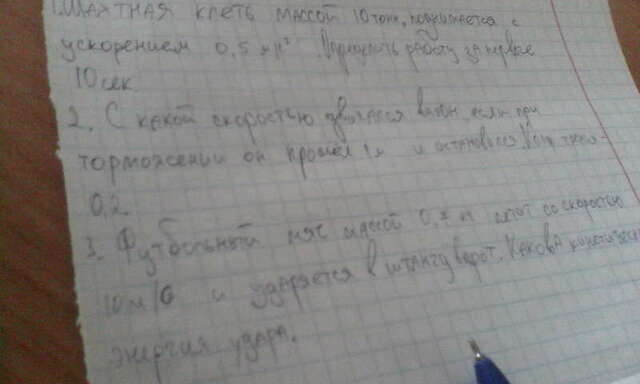 1. Шахтная клеть массой 10 тонн, поднимается с
ускорением 0,5 м/с². Определить работу за первые
10 сек.
2. С какой скоростью двигался вагон если при
торможении он прошёл 1м и остановился
0,2
3. Футбольный мяч массой 0,7 летит со скоростью
10 м/с и ударяется в штангу ворот. Какова кинетическая
энергия удара.